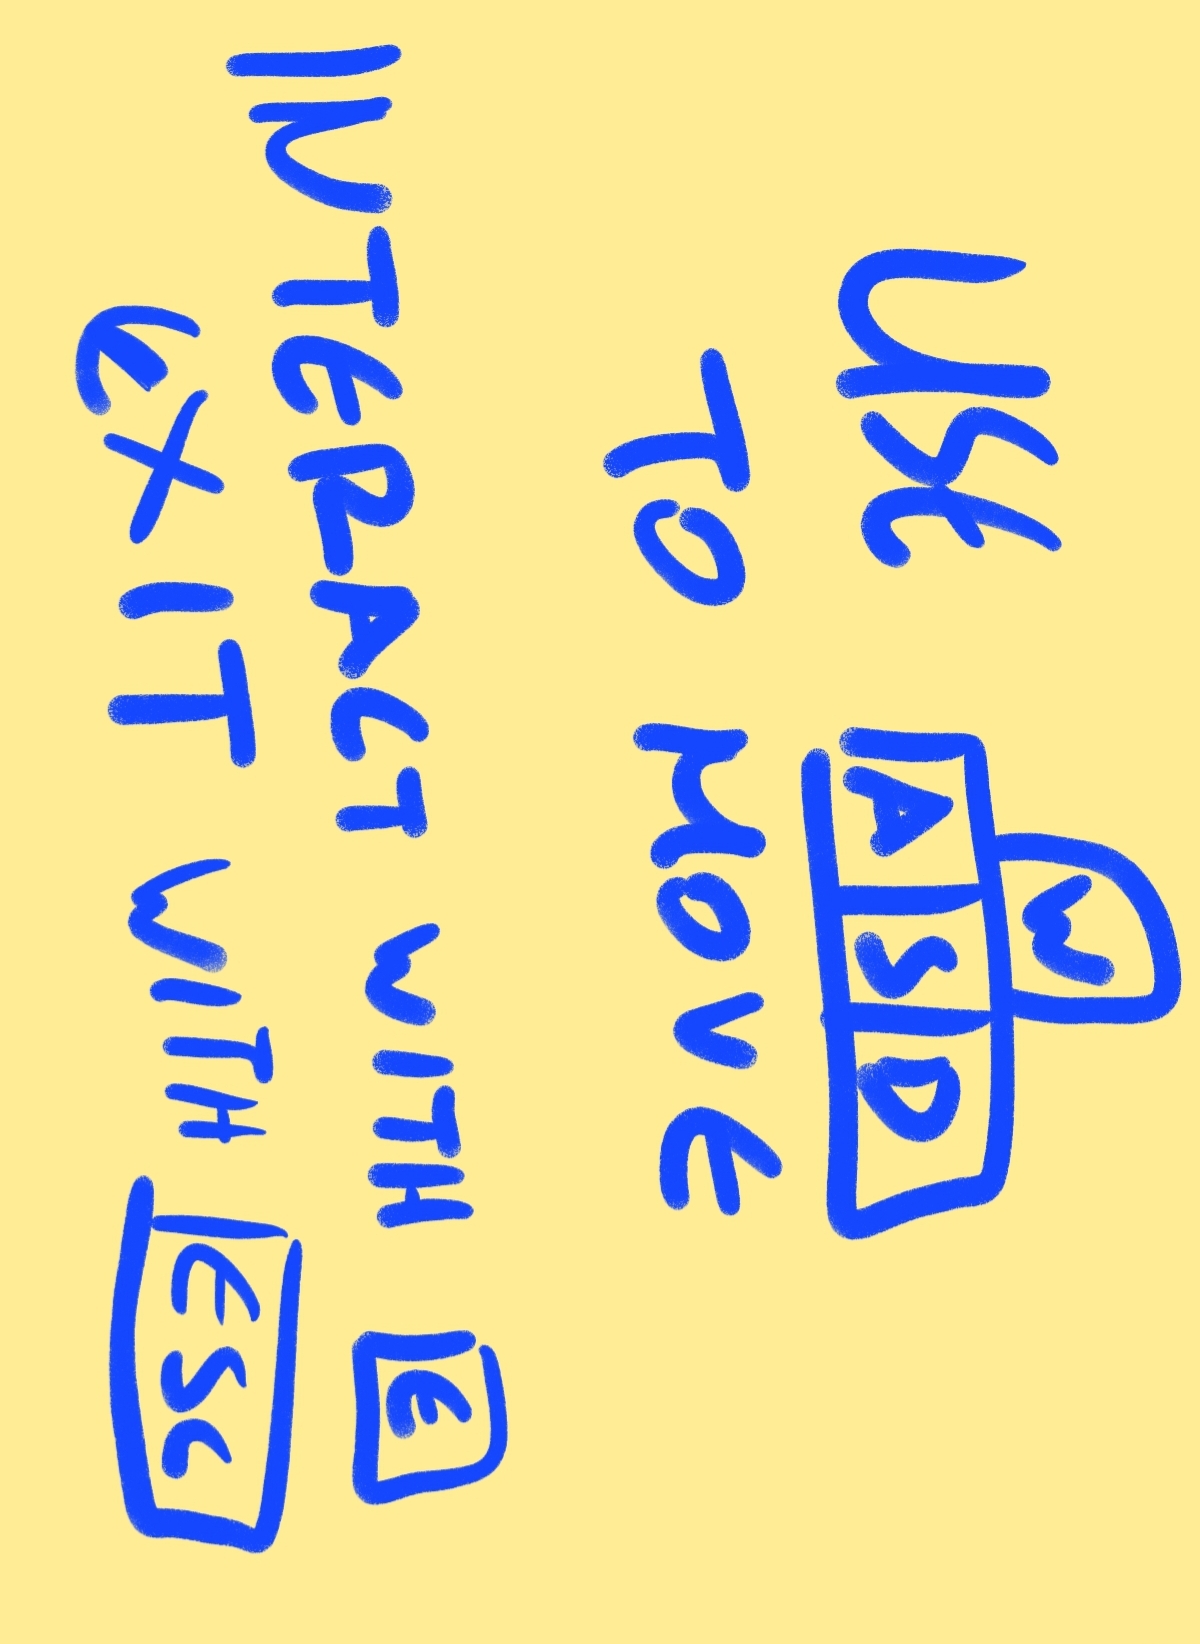 W
USE ASD
TO MOVE
INTERACT WITH E
EXIT WITH ESC